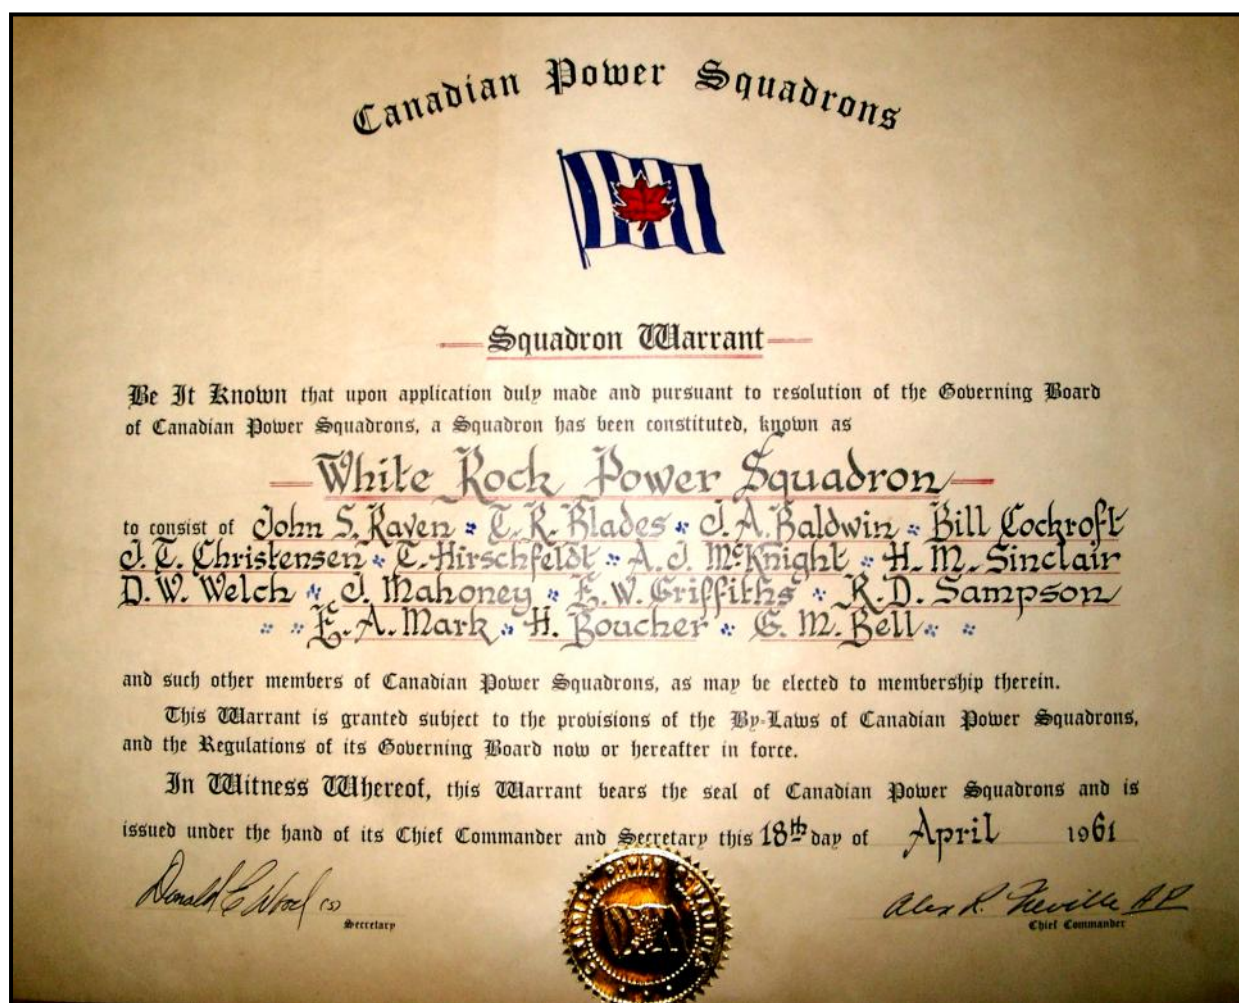 Canadian Power Squadrons
Squadron Warrant
Be It Known that upon application duly made and pursuant to resolution of the Governing Board
of Canadian Power Squadrons, a Squadron has been constituted, known as
White Rock Power Squadron
to consist of John S. Raven T. R. Blades J. A. Baldwin Bill Cockroft
J. T. Christensen T. Hirschfeldt A. J. McKnight H. M. Sinclair
D. W. Welch J. Mahoney E. W. Griffiths R. D. Sampson
E. A. Mark H. Boucher G. M. Bell
and such other members of Canadian Power Squadrons, as may be elected to membership therein.
This Warrant is granted subject to the provisions of the By-Laws of Canadian Power Squadrons,
and the Regulations of its Governing Board now or hereafter in force.
In Witness Whereof, this Warrant bears the seal of Canadian Power Squadrons and is
issued under the hand of its Chief Commander and Secretary this 18th day of April 1961
Donald (S)
Secretary
Alex R. Neville AP
Chief Commander
CANADIAN POWER SQUADRONS